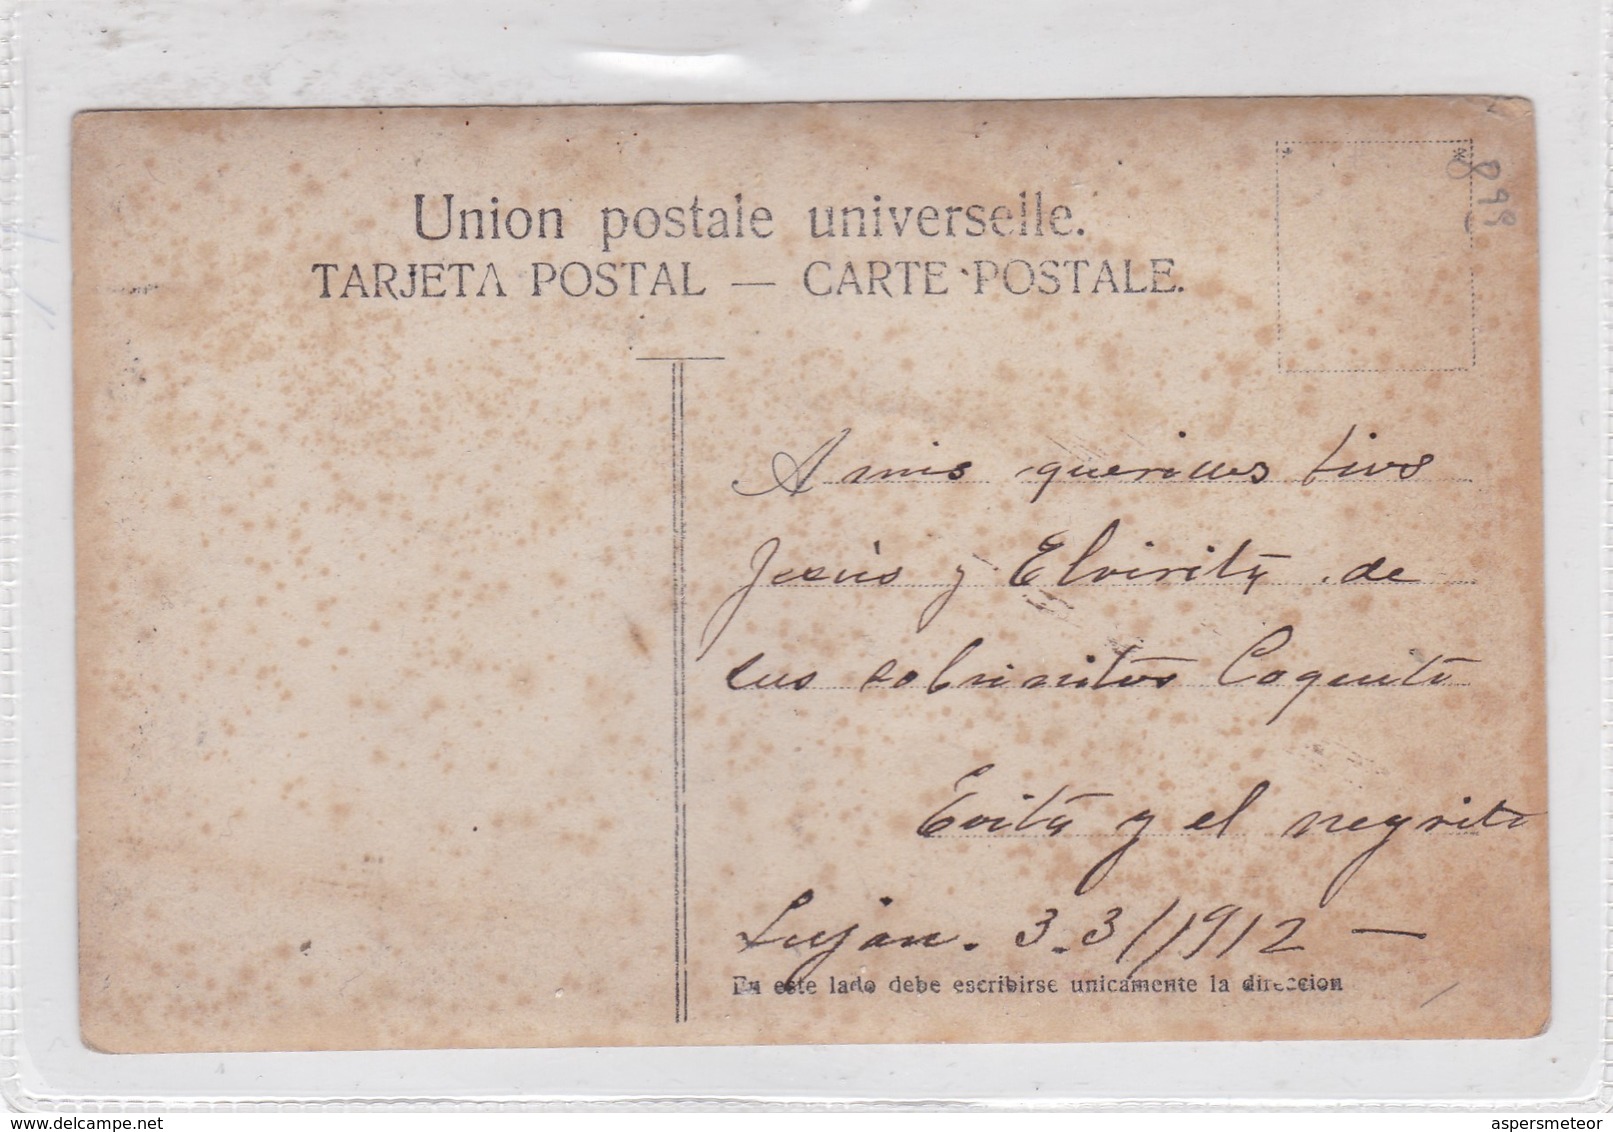 Union postale universelle.
TARJETA POSTAL — CARTE POSTALE.
899
A mis queridos tios
Jesús y Elvirita de
sus sobrinitos Coquito
Evita y el negrito
Lujan. 3-3/1912 —
En este lado debe escribirse unicamente la direccion
delcampe.net
aspersmeteor